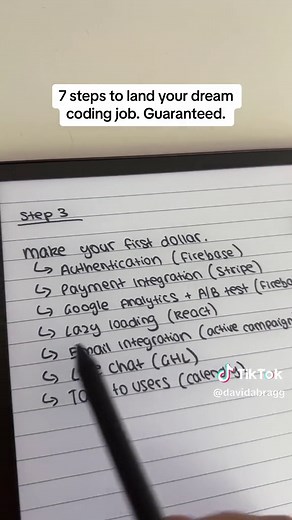 7 steps to land your dream
coding job. Guaranteed.
Step 3
make your first dollar.
↳ Authentication (Firebase)
↳ Payment Integration (Stripe)
↳ Google Analytics + A/B test (Fireb
↳ Lazy loading (React)
↳ Email integration (active campaign
↳ chat (GHL)
↳ to users (calendly)
TikTok
@davidabragg